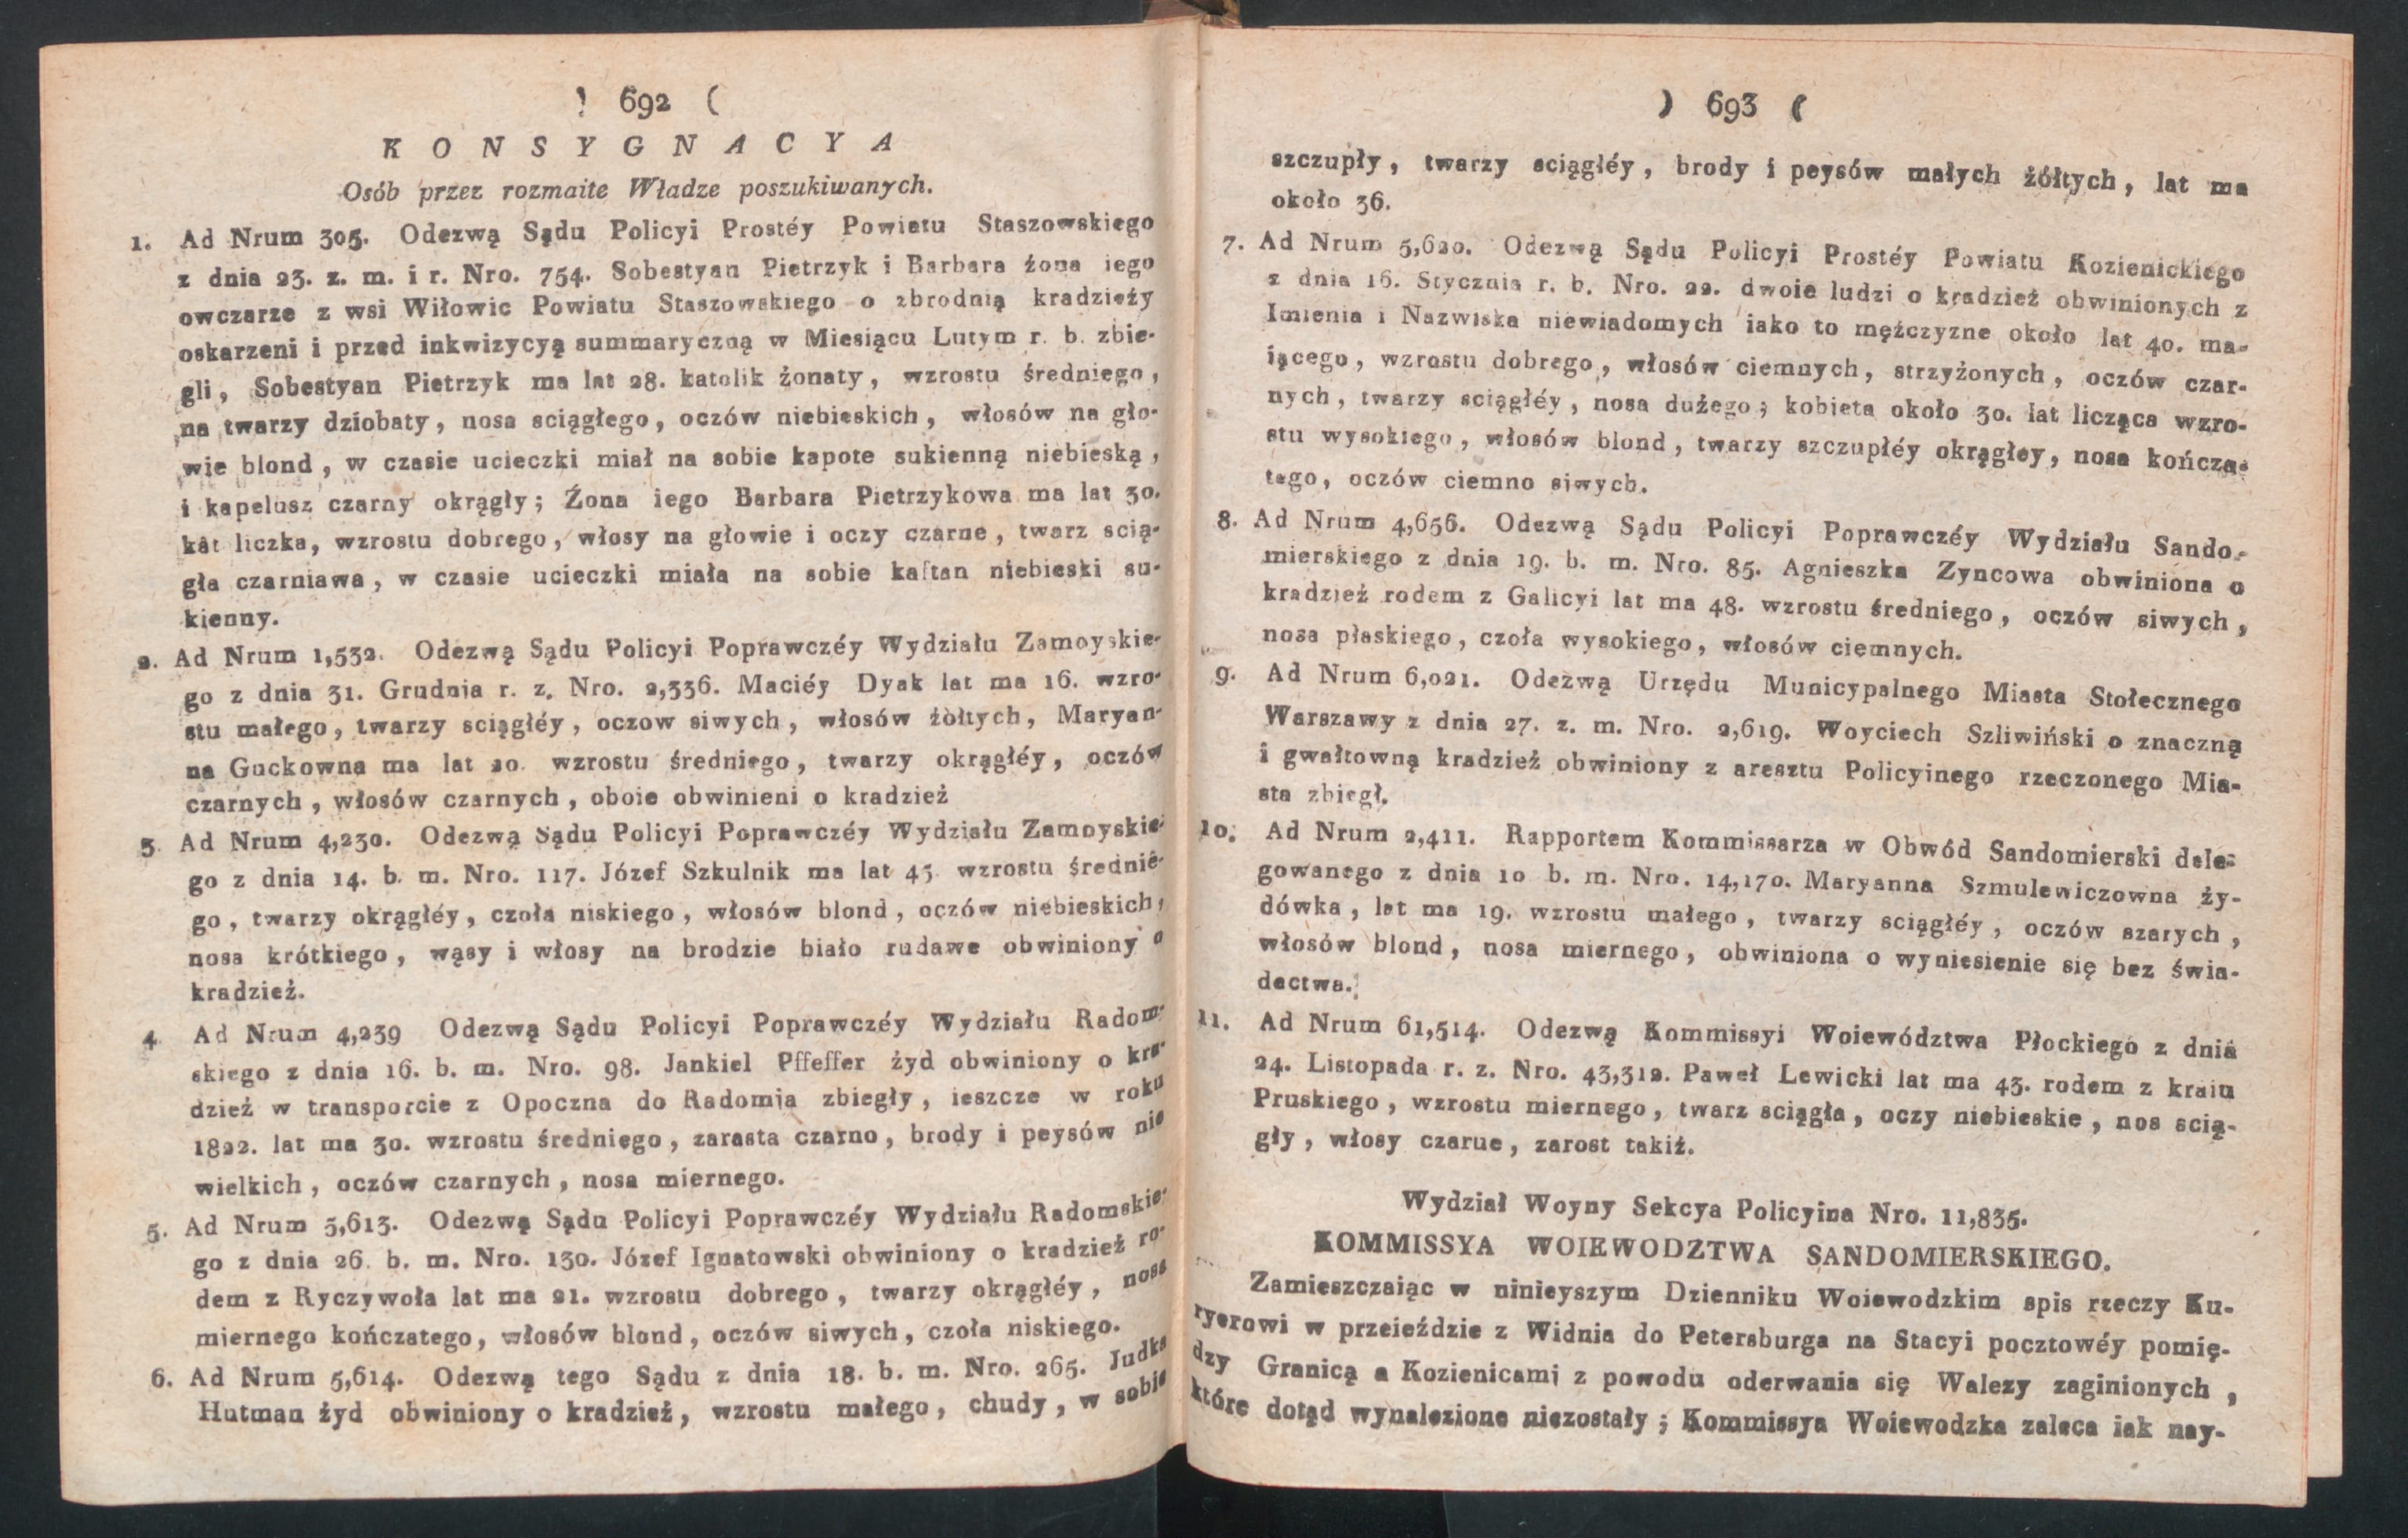 ) 692 (
KONSYGNACYA
Osób przez rozmaite Władze poszukiwanych.
1. Ad Nrum 305. Odezwą Sądu Policyi Prostéy Powiatu Staszowskiego
z dnia 23. z. m. i r. Nro. 754. Sobestyan Pietrzyk i Barbara żona iego
owczarze z wsi Wiłowic Powiatu Staszowskiego o zbrodnią kradzieży
oskarzeni i przed inkwizycyą summaryczną w Miesiącu Lutym r. b. zbie-
gli, Sobestyan Pietrzyk ma lat 28. katolik żonaty, wzrostu średniego,
na twarzy dziobaty, nosa sciągłego, oczów niebieskich, włosów na gło-
wie blond, w czasie ucieczki miał na sobie kapote sukienną niebieską,
i kapelusz czarny okrągły; Żona iego Barbara Pietrzykowa ma lat 30.
kat liczka, wzrostu dobrego, włosy na głowie i oczy czarne, twarz scią-
gła czarniawa, w czasie ucieczki miała na sobie kaftan niebieski su-
kienny.
2. Ad Nrum 1,532. Odezwą Sądu Policyi Poprawczéy Wydziału Zamoyskie-
go z dnia 31. Grudnia r. z. Nro. 2,336. Maciéy Dyak lat ma 16. wzro-
stu małego, twarzy sciągłéy, oczow siwych, włosów żółtych, Maryan-
na Guckowna ma lat 20. wzrostu średniego, twarzy okrągłéy, oczów
czarnych, włosów czarnych, oboie obwinieni o kradzież
3 Ad Nrum 4,230. Odezwą Sądu Policyi Poprawczéy Wydziału Zamoyskie-
go z dnia 14. b. m. Nro. 117. Józef Szkulnik ma lat 43 wzrostu średnie-
go, twarzy okrągłéy, czoła niskiego, włosów blond, oczów niebieskich,
nosa krótkiego, wąsy i włosy na brodzie biało rudawe obwiniony o
kradzież.
4 Ad Nrum 4,239 Odezwą Sądu Policyi Poprawczéy Wydziału Radom-
skiego z dnia 16. b. m. Nro. 98. Jankiel Pffeffer żyd obwiniony o kra-
dzież w transporcie z Opoczna do Radomia zbiegły, ieszcze w roku
1822. lat ma 30. wzrostu średniego, zarasta czarno, brody i peysów nie
wielkich, oczów czarnych, nosa miernego.
5. Ad Nrum 5,613. Odezwą Sądu Policyi Poprawczéy Wydziału Radomskie-
go z dnia 26. b. m. Nro. 130. Józef Ignatowski obwiniony o kradzież ro-
dem z Ryczywoła lat ma 21. wzrostu dobrego, twarzy okrągłéy, nosa
miernego kończatego, włosów blond, oczów siwych, czoła niskiego.
6. Ad Nrum 5,614. Odezwą tego Sądu z dnia 18. b. m. Nro. 265. Judka
Hutman żyd obwiniony o kradzież, wzrostu małego, chudy, w sobie
) 693 (
szczupły, twarzy sciągłéy, brody i peysów małych żółtych, lat ma
około 36.
7. Ad Nrum 5,620. Odezwą Sądu Policyi Prostéy Powiatu Kozienickiego
z dnia 16. Stycznia r. b. Nro. 22. dwoie ludzi o kradzież obwinionych z
Imienia i Nazwiska niewiadomych iako to mężczyzne około lat 40. ma-
iącego, wzrostu dobrego, włosów ciemnych, strzyżonych, oczów czar-
nych, twarzy sciągłéy, nosa dużego; kobieta około 30. lat licząca wzro-
stu wysokiego, włosów blond, twarzy szczupłéy okrągłey, nosa kończa-
tego, oczów ciemno siwych.
8. Ad Nrum 4,656. Odezwą Sądu Policyi Poprawczéy Wydziału Sando-
mierskiego z dnia 19. b. m. Nro. 85. Agnieszka Zyncowa obwiniona o
kradzież rodem z Galicyi lat ma 48. wzrostu średniego, oczów siwych,
nosa płaskiego, czoła wysokiego, włosów ciemnych.
9. Ad Nrum 6,021. Odezwą Urzędu Municypalnego Miasta Stołecznego
Warszawy z dnia 27. z. m. Nro. 2,619. Woyciech Szliwiński o znaczną
i gwałtowną kradzież obwiniony z aresztu Policyinego rzeczonego Mia-
sta zbiegł.
10. Ad Nrum 2,411. Rapportem Kommissarza w Obwód Sandomierski dele-
gowanego z dnia 10 b. m. Nro. 14,170. Maryanna Szmulewiczowna ży-
dówka, lat ma 19. wzrostu małego, twarzy sciągłéy, oczów szarych,
włosów blond, nosa miernego, obwiniona o wyniesienie się bez świa-
dectwa.
11. Ad Nrum 61,514. Odezwą Kommissyi Woiewództwa Płockiego z dnia
24. Listopada r. z. Nro. 43,312. Paweł Lewicki lat ma 43. rodem z kraiu
Pruskiego, wzrostu miernego, twarz sciągła, oczy niebieskie, nos scią-
gły, włosy czarue, zarost takiż.
Wydział Woyny Sekcya Policyina Nro. 11,835.
KOMMISSYA WOIEWODZTWA SANDOMIERSKIEGO.
Zamieszczaiąc w ninieyszym Dzienniku Woiewodzkim spis rzeczy Ku-
ryerowi w przeieździe z Widnia do Petersburga na Stacyi pocztowéy pomię-
dzy Granicą a Kozienicami z powodu oderwania się Walezy zaginionych,
które dotąd wynalezione niezostały; Kommissya Woiewodzka zaleca iak nay-